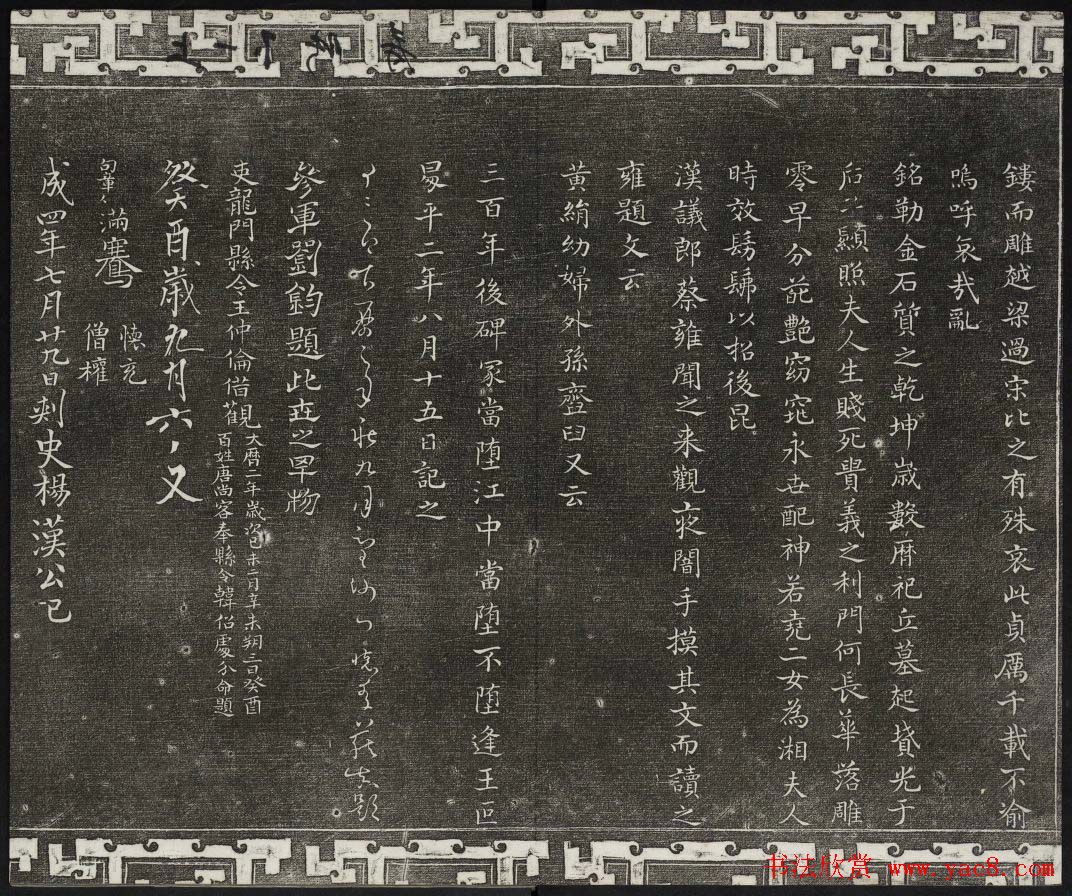 鏤而雕越梁過宋比之有殊哀此貞厲千載不渝
嗚呼哀哉亂
銘勒金石質之乾坤歲數曆祀丘墓起墳光于
后土顯照夫人生賤死貴義之利門何長華落雕
零早分葩艷窈窕永世配神若堯二女為湘夫人
時效髣髴以招後昆
漢議郎蔡雍聞之来觀夜闇手摸其文而讀之
雍題文云
黃絹幼婦外孫齏臼又云
三百年後碑冢當墮江中當墮不墮逢王叵
昇平二年八月十五日記之
九月
題
參軍劉鈞題此世之罕物
吏龍門縣令王仲倫借觀
大曆二年歲次丁未二月辛未朔三日癸酉
百姓唐尚客奉縣令韓佋處分命題
癸酉歲九月六日又
滿騫
懷充
僧權
成四年七月廿九日刺史楊漢公記
书法欣赏 www.yac8.com